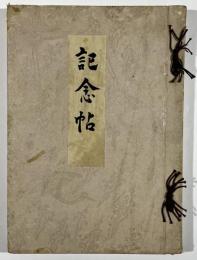 記念帖